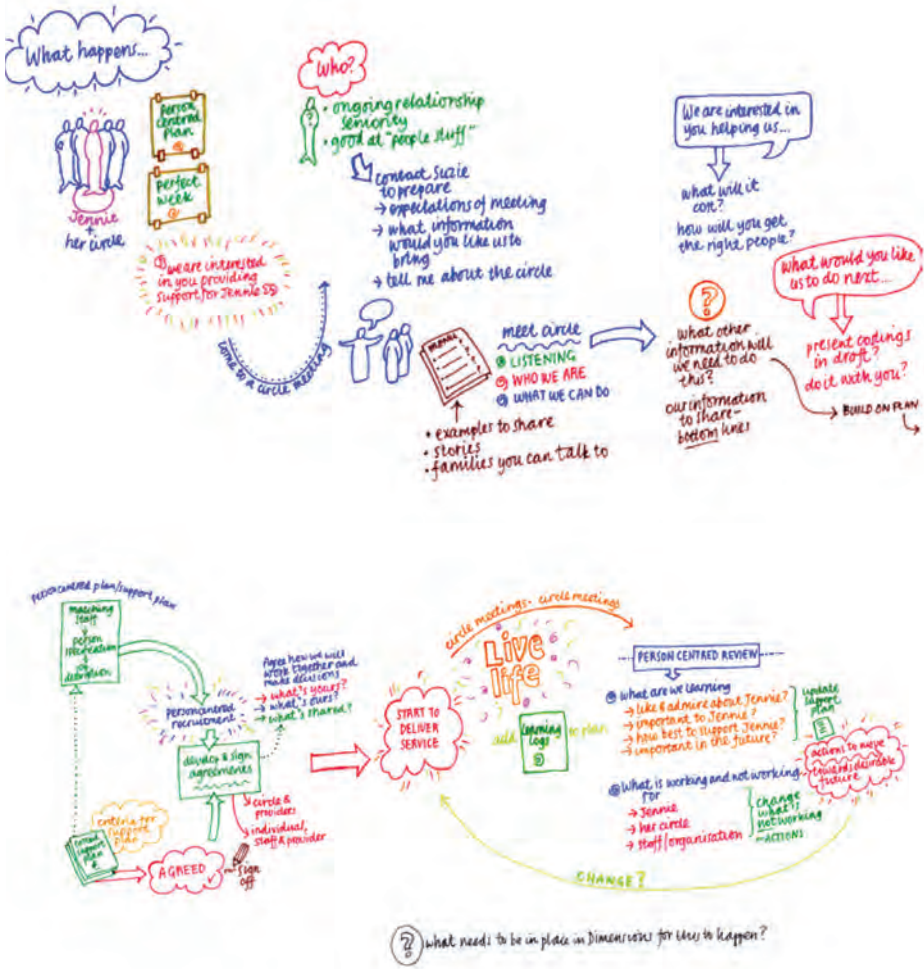 What happens...
Jennie
+
her circle
person
centred
plan
perfect
week
① we are interested
in you providing
support for Jennie SS
come to a circle meeting
Who?
• ongoing relationship
seniority
• good at "people stuff"
contact Suzie
to prepare
→ expectations of meeting
→ what information
would you like us to
bring
→ tell me about the circle
meet circle
① LISTENING
② WHO WE ARE
③ WHAT WE CAN DO
• examples to share
• stories
• families you can talk to
We are interested in
you helping us...
what will it
cost?
how will you get
the right people?
?
what other
information will
we need to do
this?
our information
to share-
bottom lines
What would you like
us to do next...
present costings
in draft?
do it with you?
→ BUILD ON PLAN
person centred plan/support plan
matching
staff
person
specification
job
description
person centred
recruitment
Agree how we will
work together and
make decisions
→ what's yours?
→ what's ours?
→ what's shared?
develop & sign
agreements
→ circle &
providers
→ individual,
staff & provider
criteria for
support
plan
support
plan
AGREED ✓
sign
off
START TO
DELIVER
SERVICE
circle meetings - circle meetings
Live
life
add
learning
logs
to plan
PERSON CENTRED REVIEW
① What are we learning
→ like & admire about Jennie?
→ important to Jennie?
→ how best to support Jennie?
→ important in the future?
update
support
plan
actions to move
towards desirable
future
② What is working and not working
for
→ Jennie
→ her circle
→ staff/organisation
change
what's
not working
→ ACTIONS
CHANGE?
? what needs to be in place in Dimensions for this to happen?